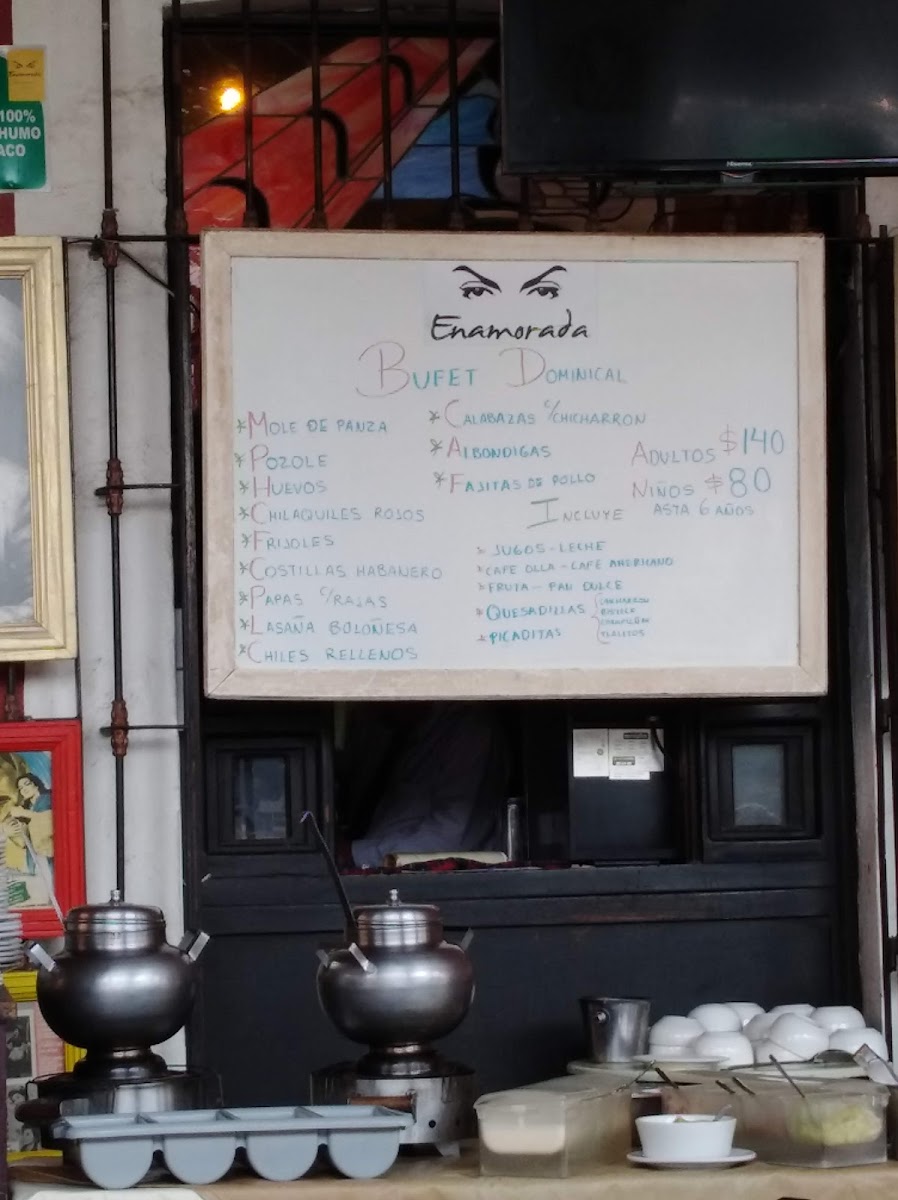 Enamorada
100%
HUMO
ACO
Hisense
Enamorada
BUFET DOMINICAL
*MOLE DE PANZA
*POZOLE
*HUEVOS
*CHILAQUILES ROJOS
*FRIJOLES
*COSTILLAS HABANERO
*PAPAS C/RAJAS
*LASAÑA BOLOÑESA
*CHILES RELLENOS
*CALABAZAS C/CHICHARRON
*ALBONDIGAS
*FAJITAS DE POLLO
ADULTOS $140
NIÑOS $80
ASTA 6 AÑOS
INCLUYE
*JUGOS-LECHE
*CAFE OLLA-CAFE AMERICANO
*FRUTA-PAN DULCE
*QUESADILLAS
*PICADITAS